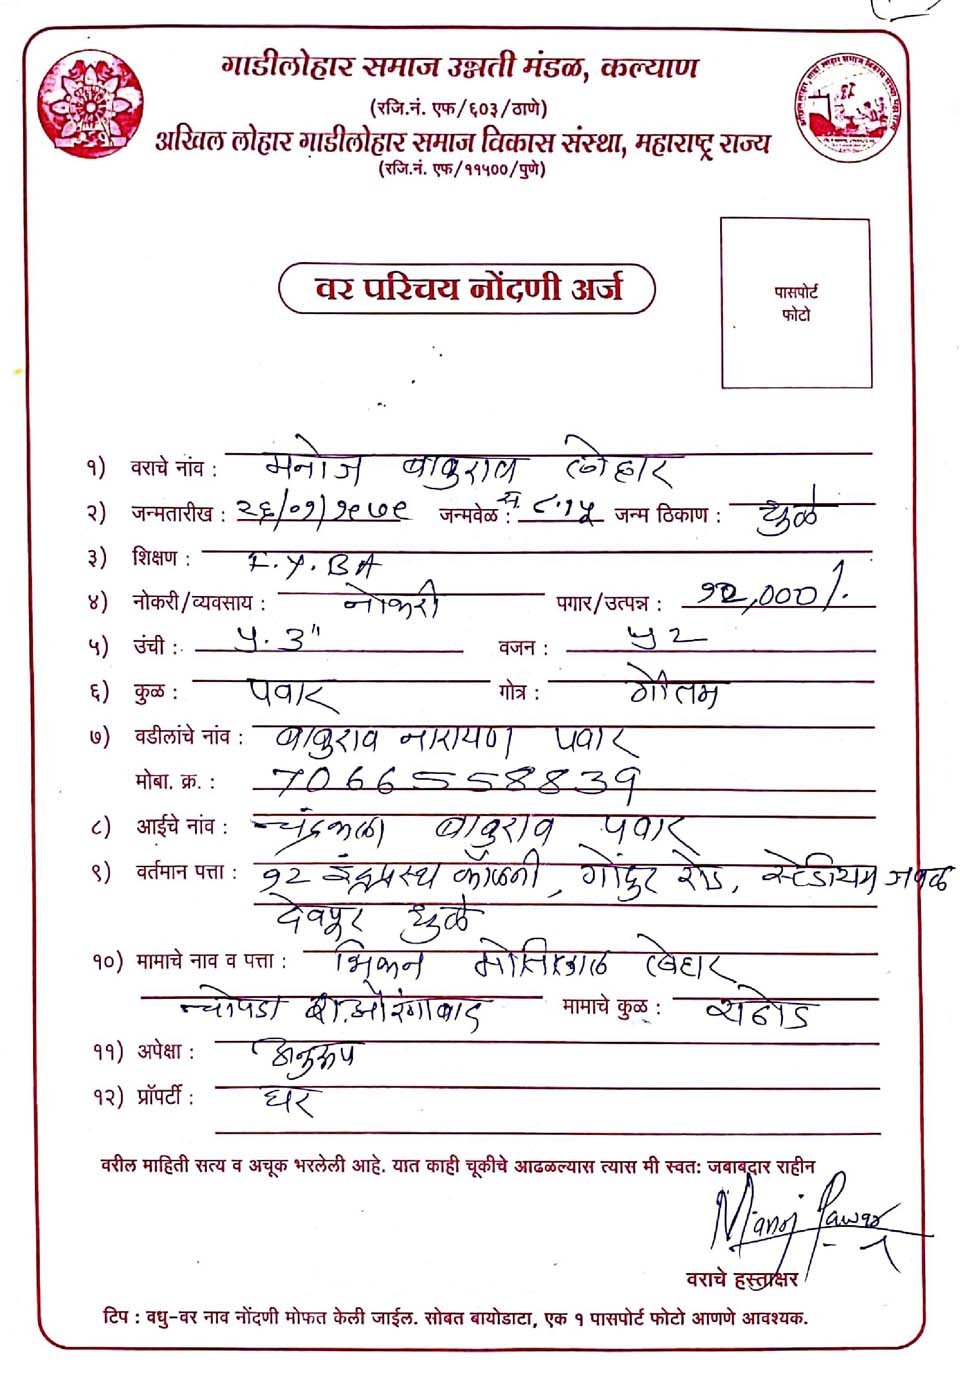 गाडीलोहार समाज उन्नती मंडळ, कल्याण
(रजि.नं. एफ/६०३/ठाणे)
अखिल लोहार गाडीलोहार समाज विकास संस्था, महाराष्ट्र राज्य
(रजि.नं. एफ/११५००/पुणे)
पासपोर्ट
फोटो
वर परिचय नोंदणी अर्ज
१) वराचे नांव : मनोज बाबुराव लोहार
२) जन्मतारीख : २६/०१/१९७९ जन्मवेळ : स. ८.१५ जन्म ठिकाण : धुळे
३) शिक्षण : F.Y.BA
४) नोकरी/व्यवसाय : नोकरी पगार/उत्पन्न : १२,०००/-
५) उंची : ५.३" वजन : ५२
६) कुळ : पवार गोत्र : गौतम
७) वडीलांचे नांव : बाबुराव नारायण पवार
मोबा. क्र. : 7066558839
८) आईचे नांव : चंद्रकला बाबुराव पवार
९) वर्तमान पत्ता : १२ इंद्रप्रस्थ कॉलनी, गोंदुर रोड, स्टेडीयम जवळ
देवपूर धुळे
१०) मामाचे नाव व पत्ता : भिकन मोतिलाल लोहार
चोपडा औरंगाबाद मामाचे कुळ : राठोड
११) अपेक्षा : अनुरूप
१२) प्रॉपर्टी : घर
वरील माहिती सत्य व अचूक भरलेली आहे. यात काही चूकीचे आढळल्यास त्यास मी स्वत: जबाबदार राहीन
Manoj Pawar
वराचे हस्ताक्षर
टिप : वधु-वर नाव नोंदणी मोफत केली जाईल. सोबत बायोडाटा, एक १ पासपोर्ट फोटो आणणे आवश्यक.